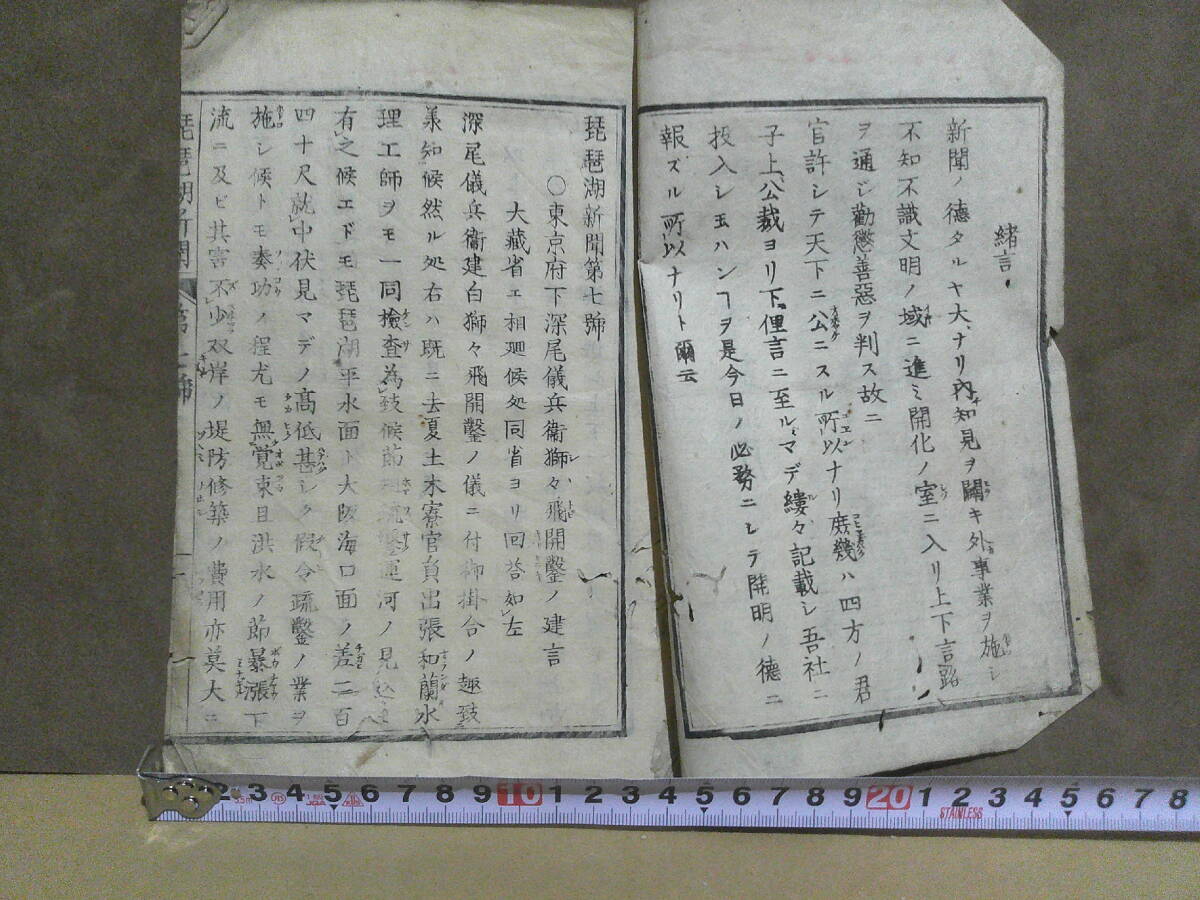 緒言
新聞ノ德タルヤ大ナリ內知見ヲ闢キ外事業ヲ施シ
不知不識文明ノ域ニ進ミ開化ノ室ニ入リ上下言路
ヲ通シ勸懲善惡ヲ判ス故ニ
官許シテ天下ニ公ニスル所以ナリ庻幾ハ四方ノ君
子上公裁ヨリ下俚言ニ至ルマデ縷々記載シ吾社ニ
投入シ玉ハンヿヲ是今日ノ必務ニシテ開明ノ德ニ
報ズル所以ナリト爾云
琵琶湖新聞第七號
○東京府下深尾儀兵衞獅々飛開鑿ノ建言
大藏省エ相廽候処同省ヨリ回荅如左
深尾儀兵衞建白獅々飛開鑿ノ儀ニ付御掛合ノ趣致
承知候然ル処右ハ既ニ去夏土木寮官員出張和蘭水
理工師ヲモ一同檢查為致候節運河ノ見込モ
有之候エドモ琵琶湖平水面ト大阪海口面ノ差二百
四十尺就中伏見マデノ高低甚シク假令疏鑿ノ業ヲ
施シ候トモ奏功ノ程尤モ無覺束且洪水ノ節暴漲下
流ニ及ビ其害不少双岸ノ堤防修築ノ費用亦莫大ニ
琵琶湖新聞 第七號 一
1 2 3 4 5 6 7 8 9 10 1 2 3 4 5 6 7 8 9 20 1 2 3 4 5 6 7 8
STAINLESS